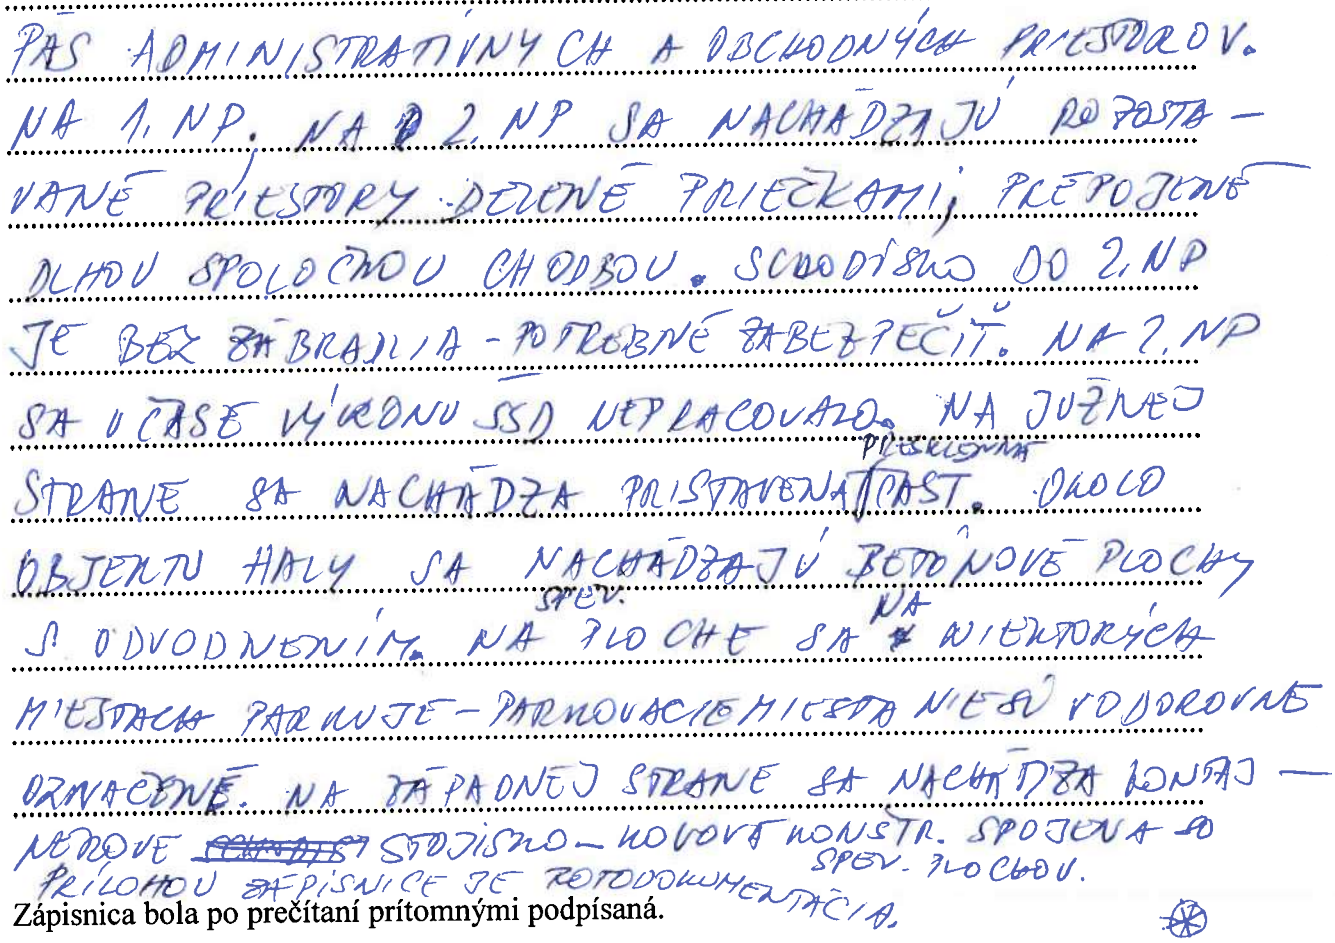 PÁS ADMINISTRATÍVNYCH A OBCHODNÝCH PRIESTOROV.
NA 1. NP. NA 2. NP SA NACHÁDZAJÚ ROZOSTA-
VANÉ PRIESTORY DELENÉ PRIEČKAMI, PREPOJENÉ
DLHOU SPOLOČNOU CHODBOU. SCHODISKO DO 2. NP
JE BEZ ZÁBRADLIA - POTREBNÉ ZABEZPEČIŤ. NA 2. NP
SA V ČASE VÝKONU ŠSD NEPRACOVALO. NA JUŽNEJ
PRESKLENNÁ
STRANE SA NACHÁDZA PRISTAVENÁ ČASŤ. OKOLO
OBJEKTU HALY SA NACHÁDZAJÚ BETÓNOVÉ PLOCHY
SPEV. NA
S ODVODNENÍM. NA PLOCHE SA NIEKTORÝCH
MIESTACH PARKUJE - PARKOVACIE MIESTA NIE SÚ VODOROVNE
OZNAČENÉ. NA ZÁPADNEJ STRANE SA NACHÁDZA KONTAJ-
NEROVÉ STOJISKO - KOVOVÁ KONŠTR. SPOJENÁ SO
SPEV. PLOCHOU.
PRÍLOHOU ZÁPISNICE JE FOTODOKUMENTÁCIA.
Zápisnica bola po prečítaní prítomnými podpísaná.